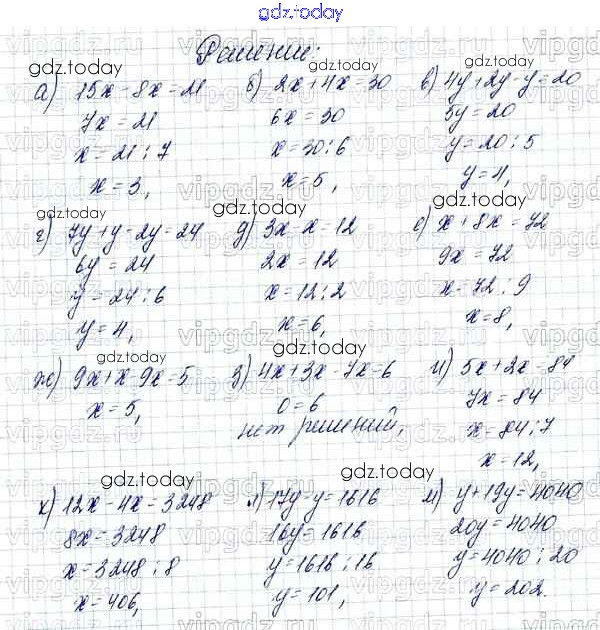 gdz.today
Решение:
gdz.today gdz.today gdz.today
а) 15x - 8x = 21
7x = 21
x = 21 : 7
x = 3,
б) 2x + 4x = 30
6x = 30
x = 30 : 6
x = 5,
в) 4y + 2y - y = 20
5y = 20
y = 20 : 5
y = 4,
gdz.today gdz.today gdz.today
г) 7y + y - 2y = 24
6y = 24
y = 24 : 6
y = 4,
д) 3x - x = 12
2x = 12
x = 12 : 2
x = 6,
е) x + 8x = 72
9x = 72
x = 72 : 9
x = 8,
gdz.today gdz.today gdz.today
ж) 9x + x - 9x = 5
x = 5,
з) 4x + 3x - 7x = 6
0 = 6
нет решений,
и) 5x + 2x = 84
7x = 84
x = 84 : 7
x = 12,
gdz.today gdz.today gdz.today
к) 12x - 4x = 3248
8x = 3248
x = 3248 : 8
x = 406,
л) 17y - y = 1616
16y = 1616
y = 1616 : 16
y = 101,
м) y + 19y = 4040
20y = 4040
y = 4040 : 20
y = 202.
vipgdz.ru